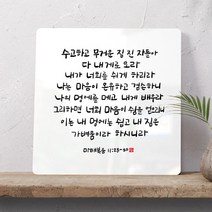 수고하고 무거운 짐 진 자들아
다 내게로 오라
내가 너희를 쉬게 하리라
나는 마음이 온유하고 겸손하니
나의 멍에를 메고 내게 배우라
그리하면 너희 마음이 쉼을 얻으리니
이는 내 멍에는 쉽고 내 짐은
가벼움이라 하시니라
마태복음 11:28-30